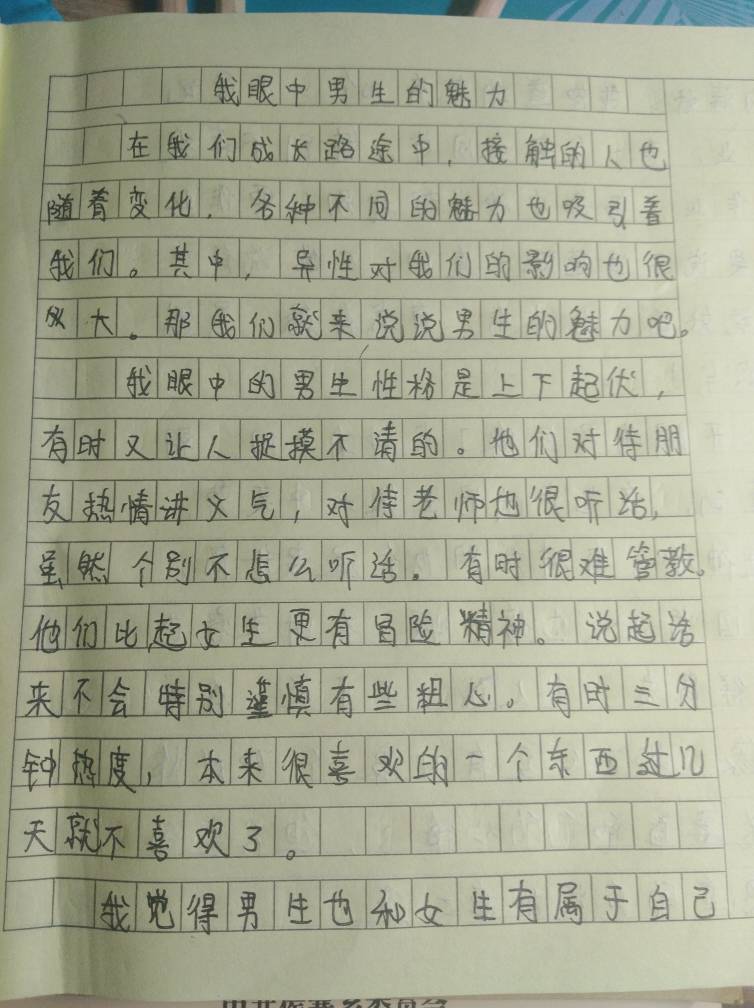 我眼中男生的魅力
在我们成长路途中，接触的人也
随着变化，各种不同的魅力也吸引着
我们。其中，异性对我们的影响也很
大。那我们就来说说男生的魅力吧。
我眼中的男生性格是上下起伏，
有时又让人捉摸不清的。他们对待朋
友热情讲义气，对待老师也很听话，
虽然个别不怎么听话。有时很难管教。
他们比起女生更有冒险精神。说起话
来不会特别谨慎有些粗心。有时三分
钟热度，本来很喜欢的一个东西过几
天就不喜欢了。
我觉得男生也和女生有属于自己